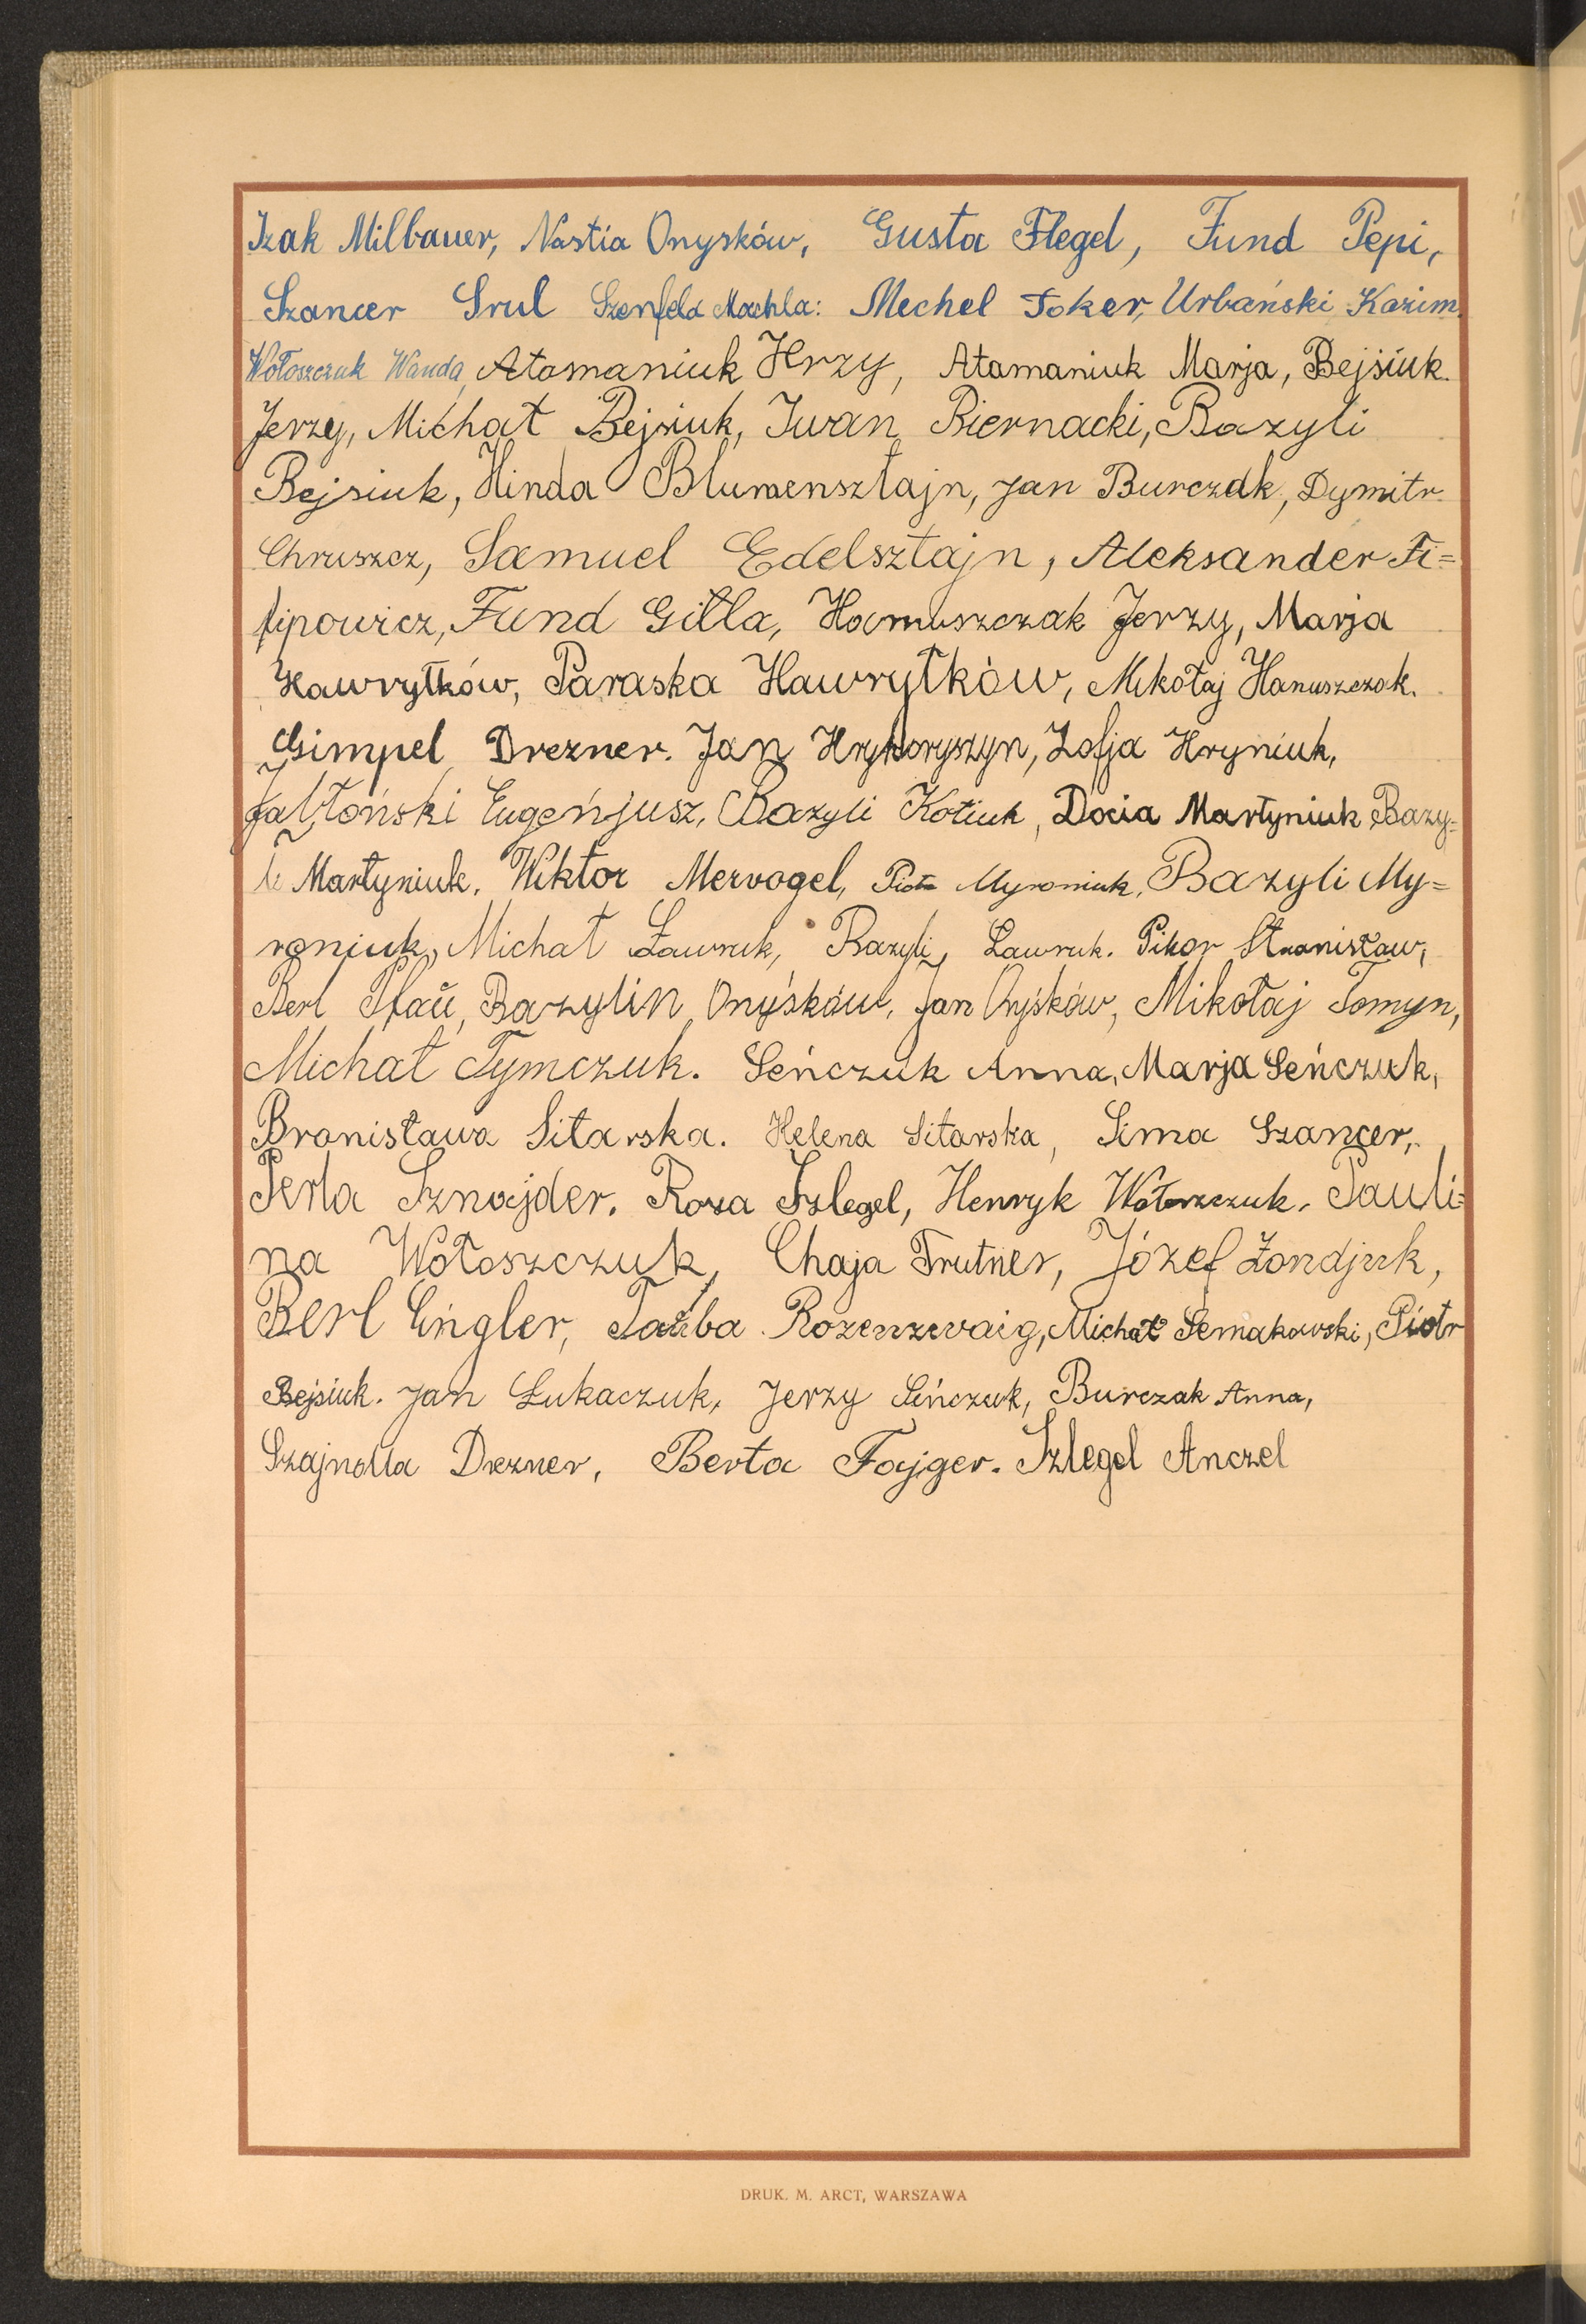 Izak Milbauer, Nastia Onysków, Gusta Flegel, Fund Pepi,
Szancer Srul Szenfeld Machla: Mechel Toker, Urbański Kazim.
Wołoszczuk Wanda, Atamaniuk Jerzy, Atamaniuk Marja, Bejsiuk
Jerzy, Michał Bejsiuk, Iwan Biernacki, Bazyli
Bejsiuk, Hinda Blumensztajn, Jan Burczak, Dymitr
Chruszcz, Samuel Edelsztajn, Aleksander Fi=
lipowicz, Fund Gitla, Hanuszczak Jerzy, Marja
Hawryłków, Paraska Hawryłków, Mikołaj Hanuszczak.
Gimpel Drezner. Jan Hryhoryszyn, Zofja Hryniuk,
Jabłoński Eugenjusz, Bazyli Kotiuk, Docia Martyniuk, Bazy=
li Martyniuk. Wiktor Mervogel, Piotr Myroniuk, Bazyli My=
roniuk, Michał Ławruk, Bazyli Ławruk. Pikor Stanisław,
Berl Pfau, Bazylin Onyśków, Jan Onyśków, Mikołaj Tomyn,
Michał Tymczuk. Seńczuk Anna, Marja Seńczuk,
Bronisława Sitarska. Helena Sitarska, Sima Szancer,
Perla Sznajder. Roza Szlegel, Henryk Wołoszczuk. Pauli=
na Wołoszczuk, Chaja Trutner, Józef Żondjuk,
Berl Engler, Tauba Rozenzwaig, Michał Semakowski, Piotr
Bejsiuk. Jan Łukaczuk, Jerzy Seńczuk, Burczak Anna,
Drezner, Berta Fajger. Szlegel Anczel
DRUK. M. ARCT, WARSZAWA